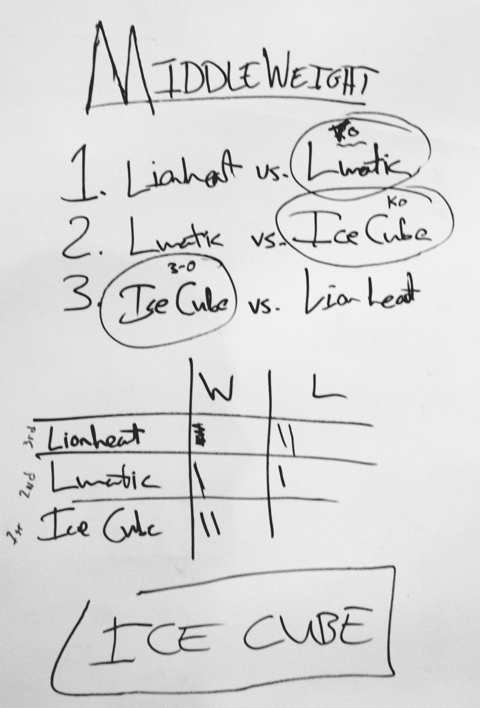 MIDDLEWEIGHT
KO
1. Lionheat vs. Lmatic
KO
2. Lmatic vs. Ice Cube
3-0
3. Ice Cube vs. Lionheat
W L
3rd Lionheat || 
2nd Lmatic | |
1st Ice Cube ||
ICE CUBE